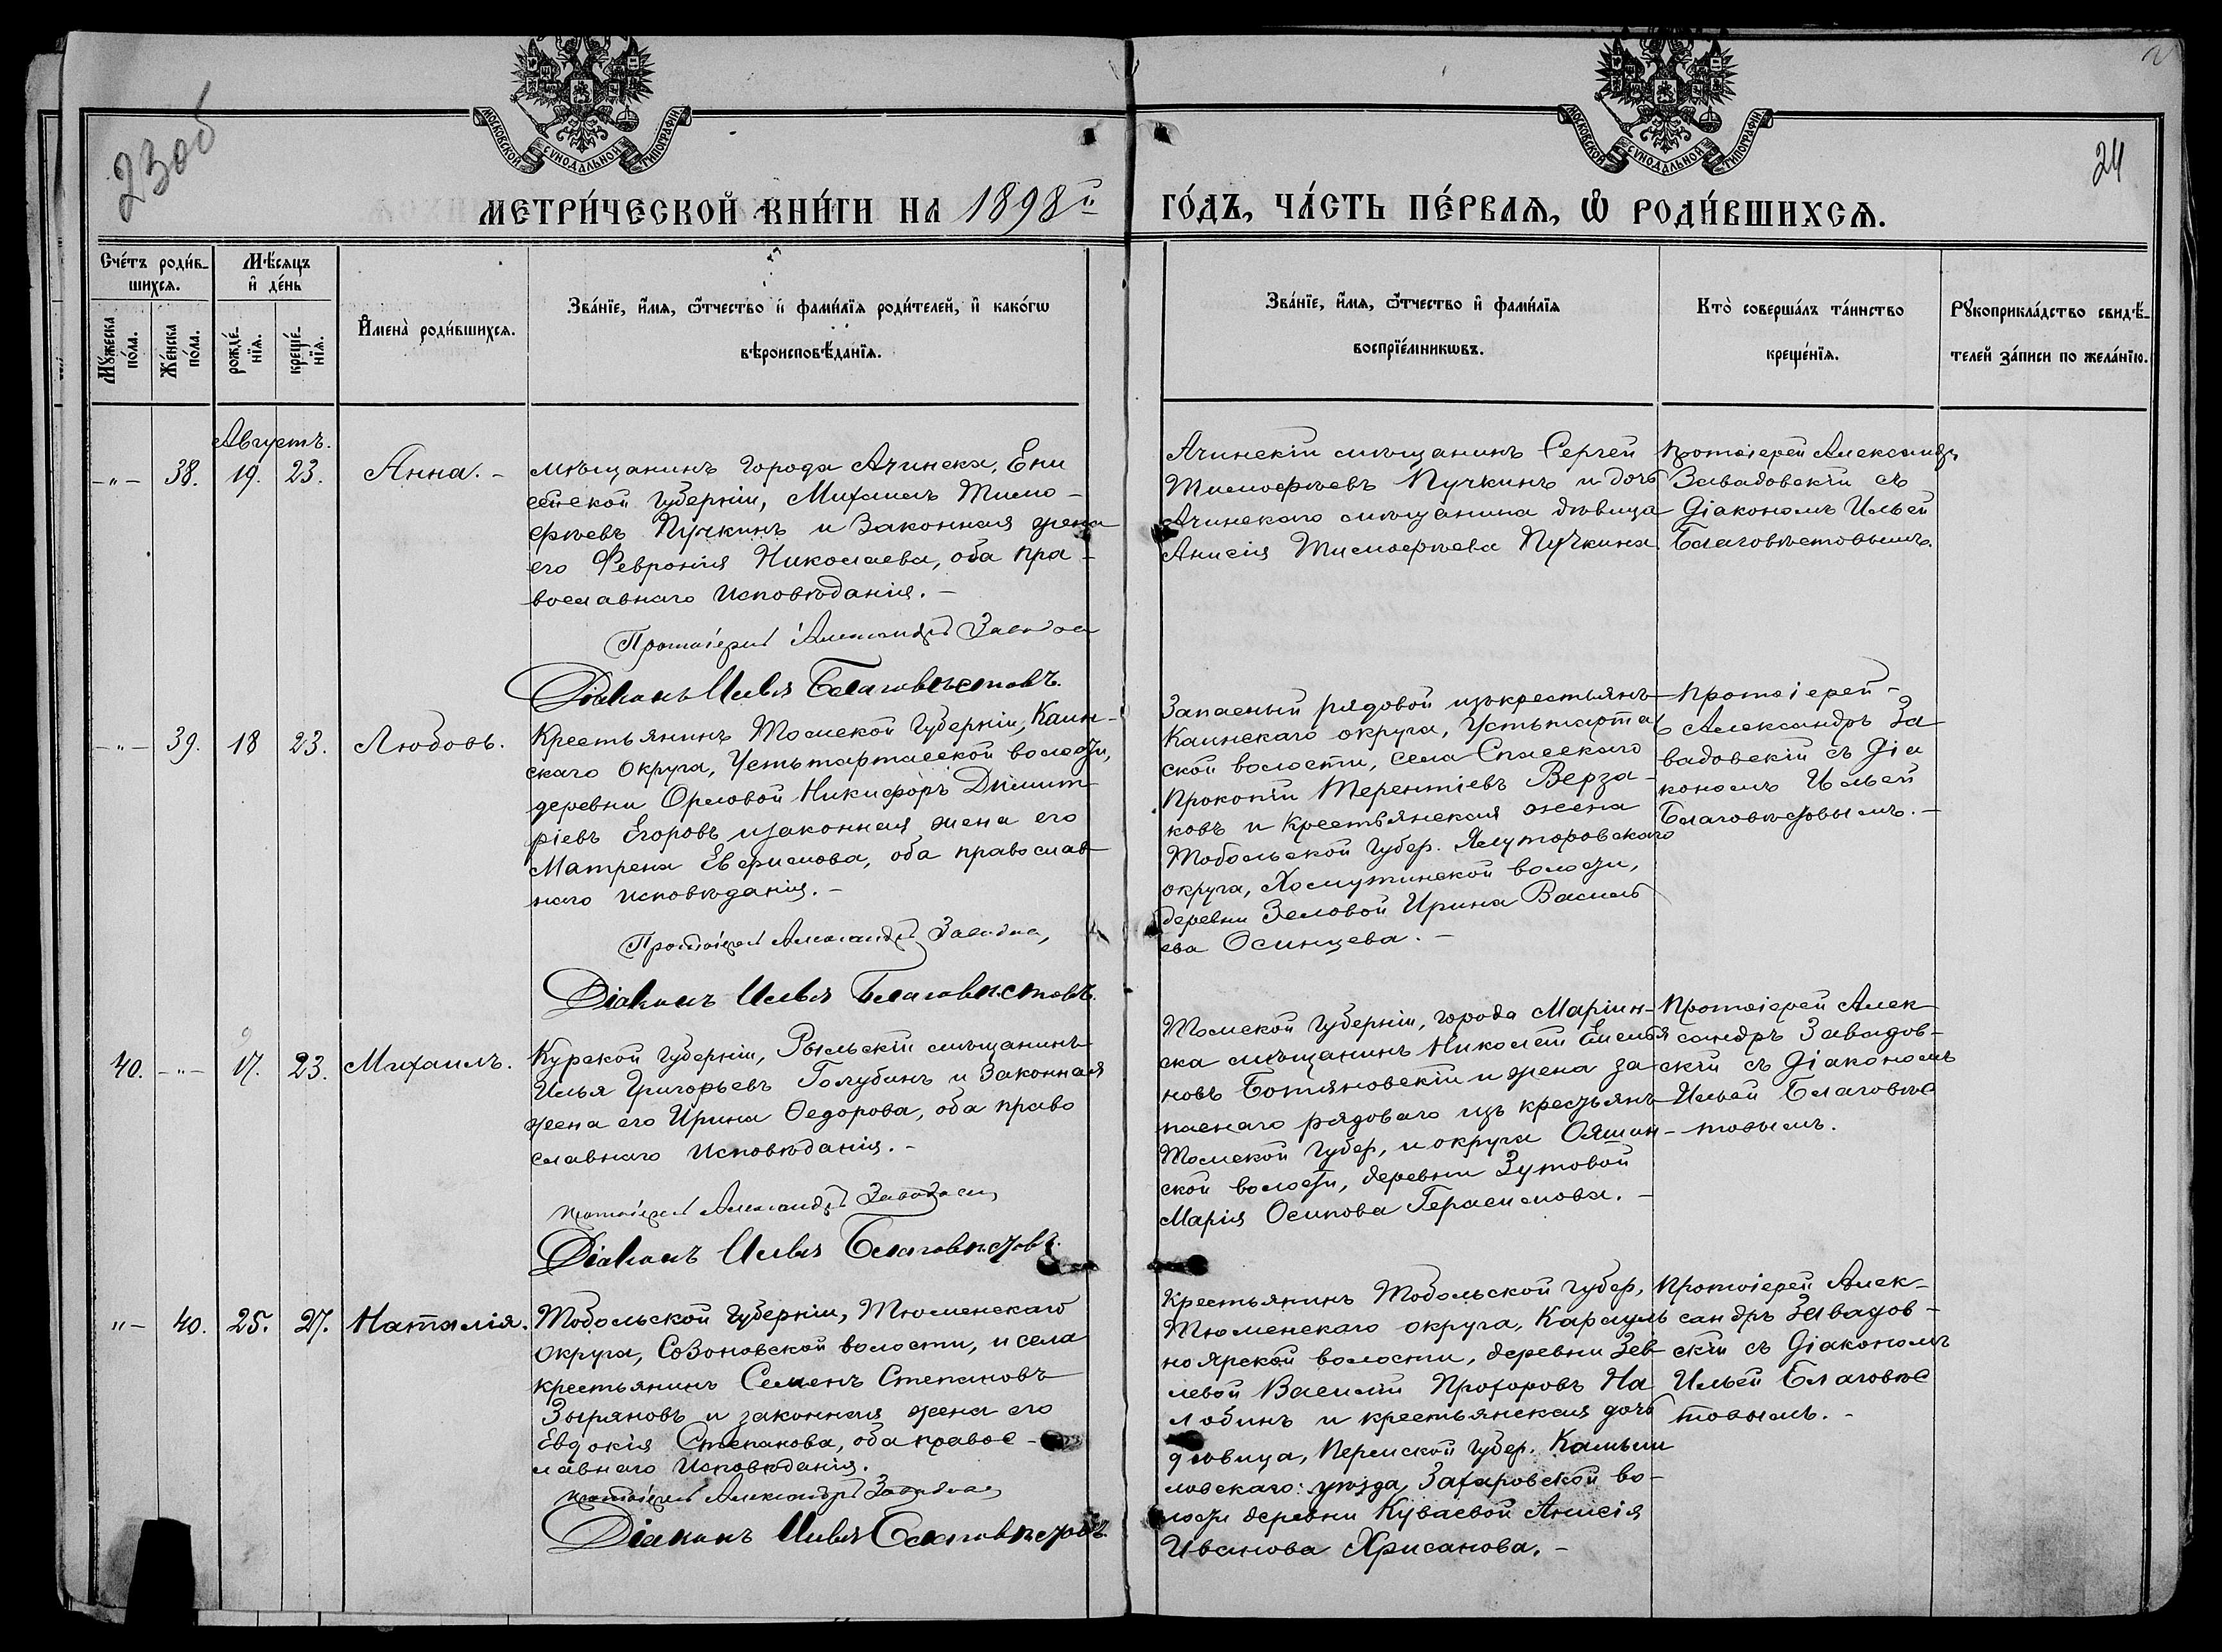 МОСКОВСКОЙ СѴНОДАЛЬНОЙ ТИПОГРАФІИ
МОСКОВСКОЙ СѴНОДАЛЬНОЙ ТИПОГРАФІИ
23об
24
МЕТРИ́ЧЕСКОЙ КНИ́ГИ НА 1898й
ГО́ДЪ, ЧА́СТЬ ПЕ́РВАѦ, Ѡ҆ РОДИ́ВШИХСѦ.
Сче́тъ роди́в-
шихсѧ.
Мѣ́сѧцъ
и҆ де́нь
Мꙋ́жеска
по́ла.
Же́нска
по́ла.
рожде́-
нїѧ.
креще́-
нїѧ.
И҆мена̀ роди́вшихсѧ.
Зва́нїе, и҆́мѧ, ѻ҆́тчество и҆ фами́лїѧ роди́телей, и҆ како́гѡ
вѣроисповѣ́данїѧ.
Зва́нїе, и҆́мѧ, ѻ҆́тчество и҆ фами́лїѧ
воспрїе́мникѡвъ.
Кто̀ соверша́лъ та́инство
креще́нїѧ.
Рꙋкоприкла́дство свидѣ́-
телей за́писи по жела́нїю.
Августъ.
-"- 38. 19. 23. Анна. -
мѣщанинъ города Ачинска, Ени
сейской Губерніи, Михаилъ Тимо-
фѣевъ Пучкинъ и Законная жена
его Февронія Николаева, оба пра-
вославнаго исповѣданія. -
Протоіерей Александръ
Діаконъ Илья Благовѣстовъ.
Ачинскій мѣщанинъ Сергей
Тимофѣевъ Пучкинъ и дочь
Ачинскаго мѣщанина дѣвица
Анисія Тимофѣева Пучкина.
Протоіерей Александръ
Завадовскій съ
Діакономъ Ильей
Благовѣстовымъ.
-"- 39. 18 23. Любовь.
Крестьянинъ Томской Губерніи, Каин-
скаго Округа, Устьтартасской волости,
деревни Орловой Никифоръ Димит-
ріевъ Егоровъ и законная жена его
Матрена Евфимова, оба православ-
наго исповѣданія. -
Протоіерей Александръ
Діаконъ Илья Благовѣстовъ.
Запасный рядовой изъ крестьянъ
Каинскаго округа, Устьтартас
ской волости, села Спасскаго
Прокопій Терентіевъ Верза-
ковъ и Крестьянская жена
Тобольской Губер. Ялуторовскаго
округа, Хомутинской волости,
деревни Зеловой Ирина Василь
ева Осинцева. -
Протоіерей-
Александръ За
вадовскій съ Діа
кономъ Ильей
Благовѣстовымъ. -
40. -"- 17. 23. Михаилъ.
Курской Губерніи, Рыльскій мѣщанинъ
Илья Григорьевъ Голубинъ и Законная
жена его Ирина Ѳедорова, оба право
славнаго Исповѣданія. -
Протоіерей Александръ
Діаконъ Илья Благовѣстовъ.
Томской Губерніи, города Маріин-
ска мѣщанинъ Николай Емелья
новъ Ботяновскій и жена за-
паснаго рядоваго изъ крестьянъ
Томской Губер, и округа Ояшин-
ской волости, деревни Зутовой
Марія Осипова Герасимова. -
Протоіерей Алек-
сандръ Завадов-
скій съ Діакономъ
Ильей Благовѣс
товымъ.
"- 40. 25. 27. Наталія.
Тобольской Губерніи, Тюменскаго
Округа, Созоновской волости, и села
крестьянинъ Семенъ Степановъ
Зыряновъ и законная жена его
Евдокія Степанова, оба правос-
лавнаго Исповѣданія.
Протоіерей Александръ
Діаконъ Илья Благовѣстовъ
Крестьянинъ Тобольской Губер,
Тюменскаго округа, Карауль
ноярской волости, деревни Зев
левой Василій Прохоровъ На
лобинъ и крестьянская дочь
дѣвица, Пермской Губер. Камыш
ловскаго: уѣзда, Захаровской во-
лости деревни Куваевой Анисія
Иванова Хрисанова. -
Протоіерей Алек-
сандръ Завадов-
скій съ Діакономъ
Ильей Благовѣс
товымъ. -